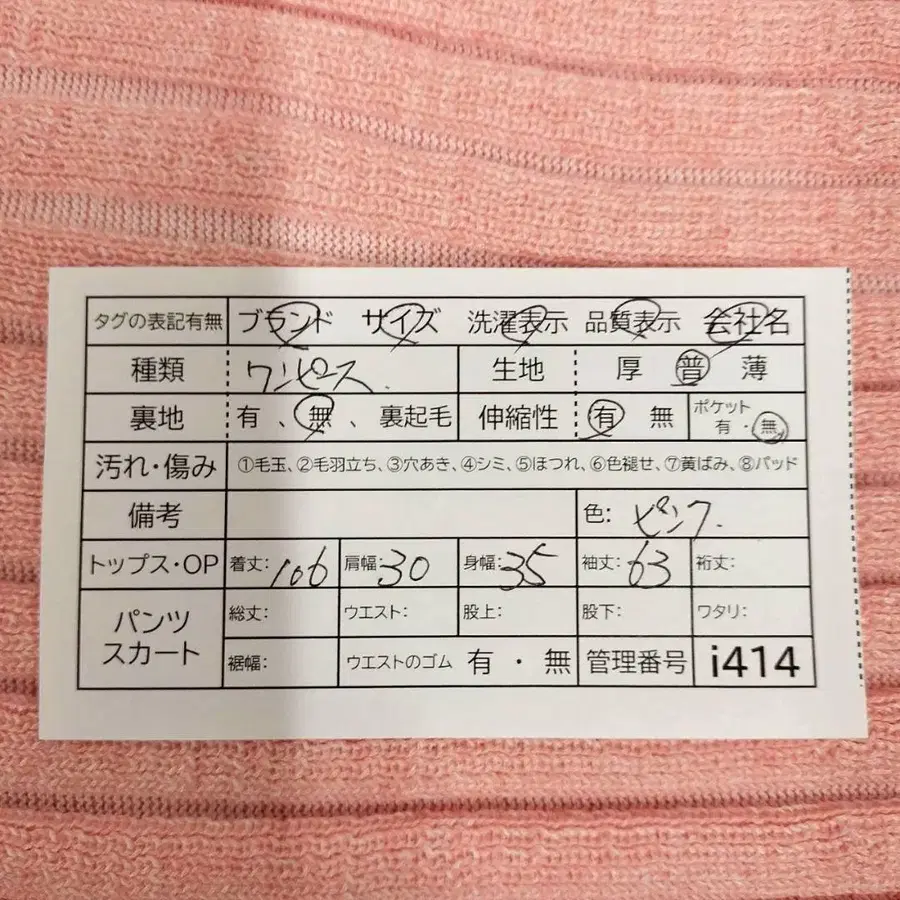 タグの表記有無 ブランド サイズ 洗濯表示 品質表示 会社名
種類 ワンピース. 生地 厚 普 薄
裏地 有 、 無 、 裏起毛 伸縮性 有 無 ポケット 有・無
汚れ・傷み ①毛玉、②毛羽立ち、③穴あき、④シミ、⑤ほつれ、⑥色褪せ、⑦黄ばみ、⑧パッド
備考 色: ピンク.
トップス・OP 着丈: 106 肩幅: 30 身幅: 35 袖丈: 63 裄丈:
パンツ スカート 総丈: ウエスト: 股上: 股下: ワタリ:
裾幅: ウエストのゴム 有 ・ 無 管理番号 i414